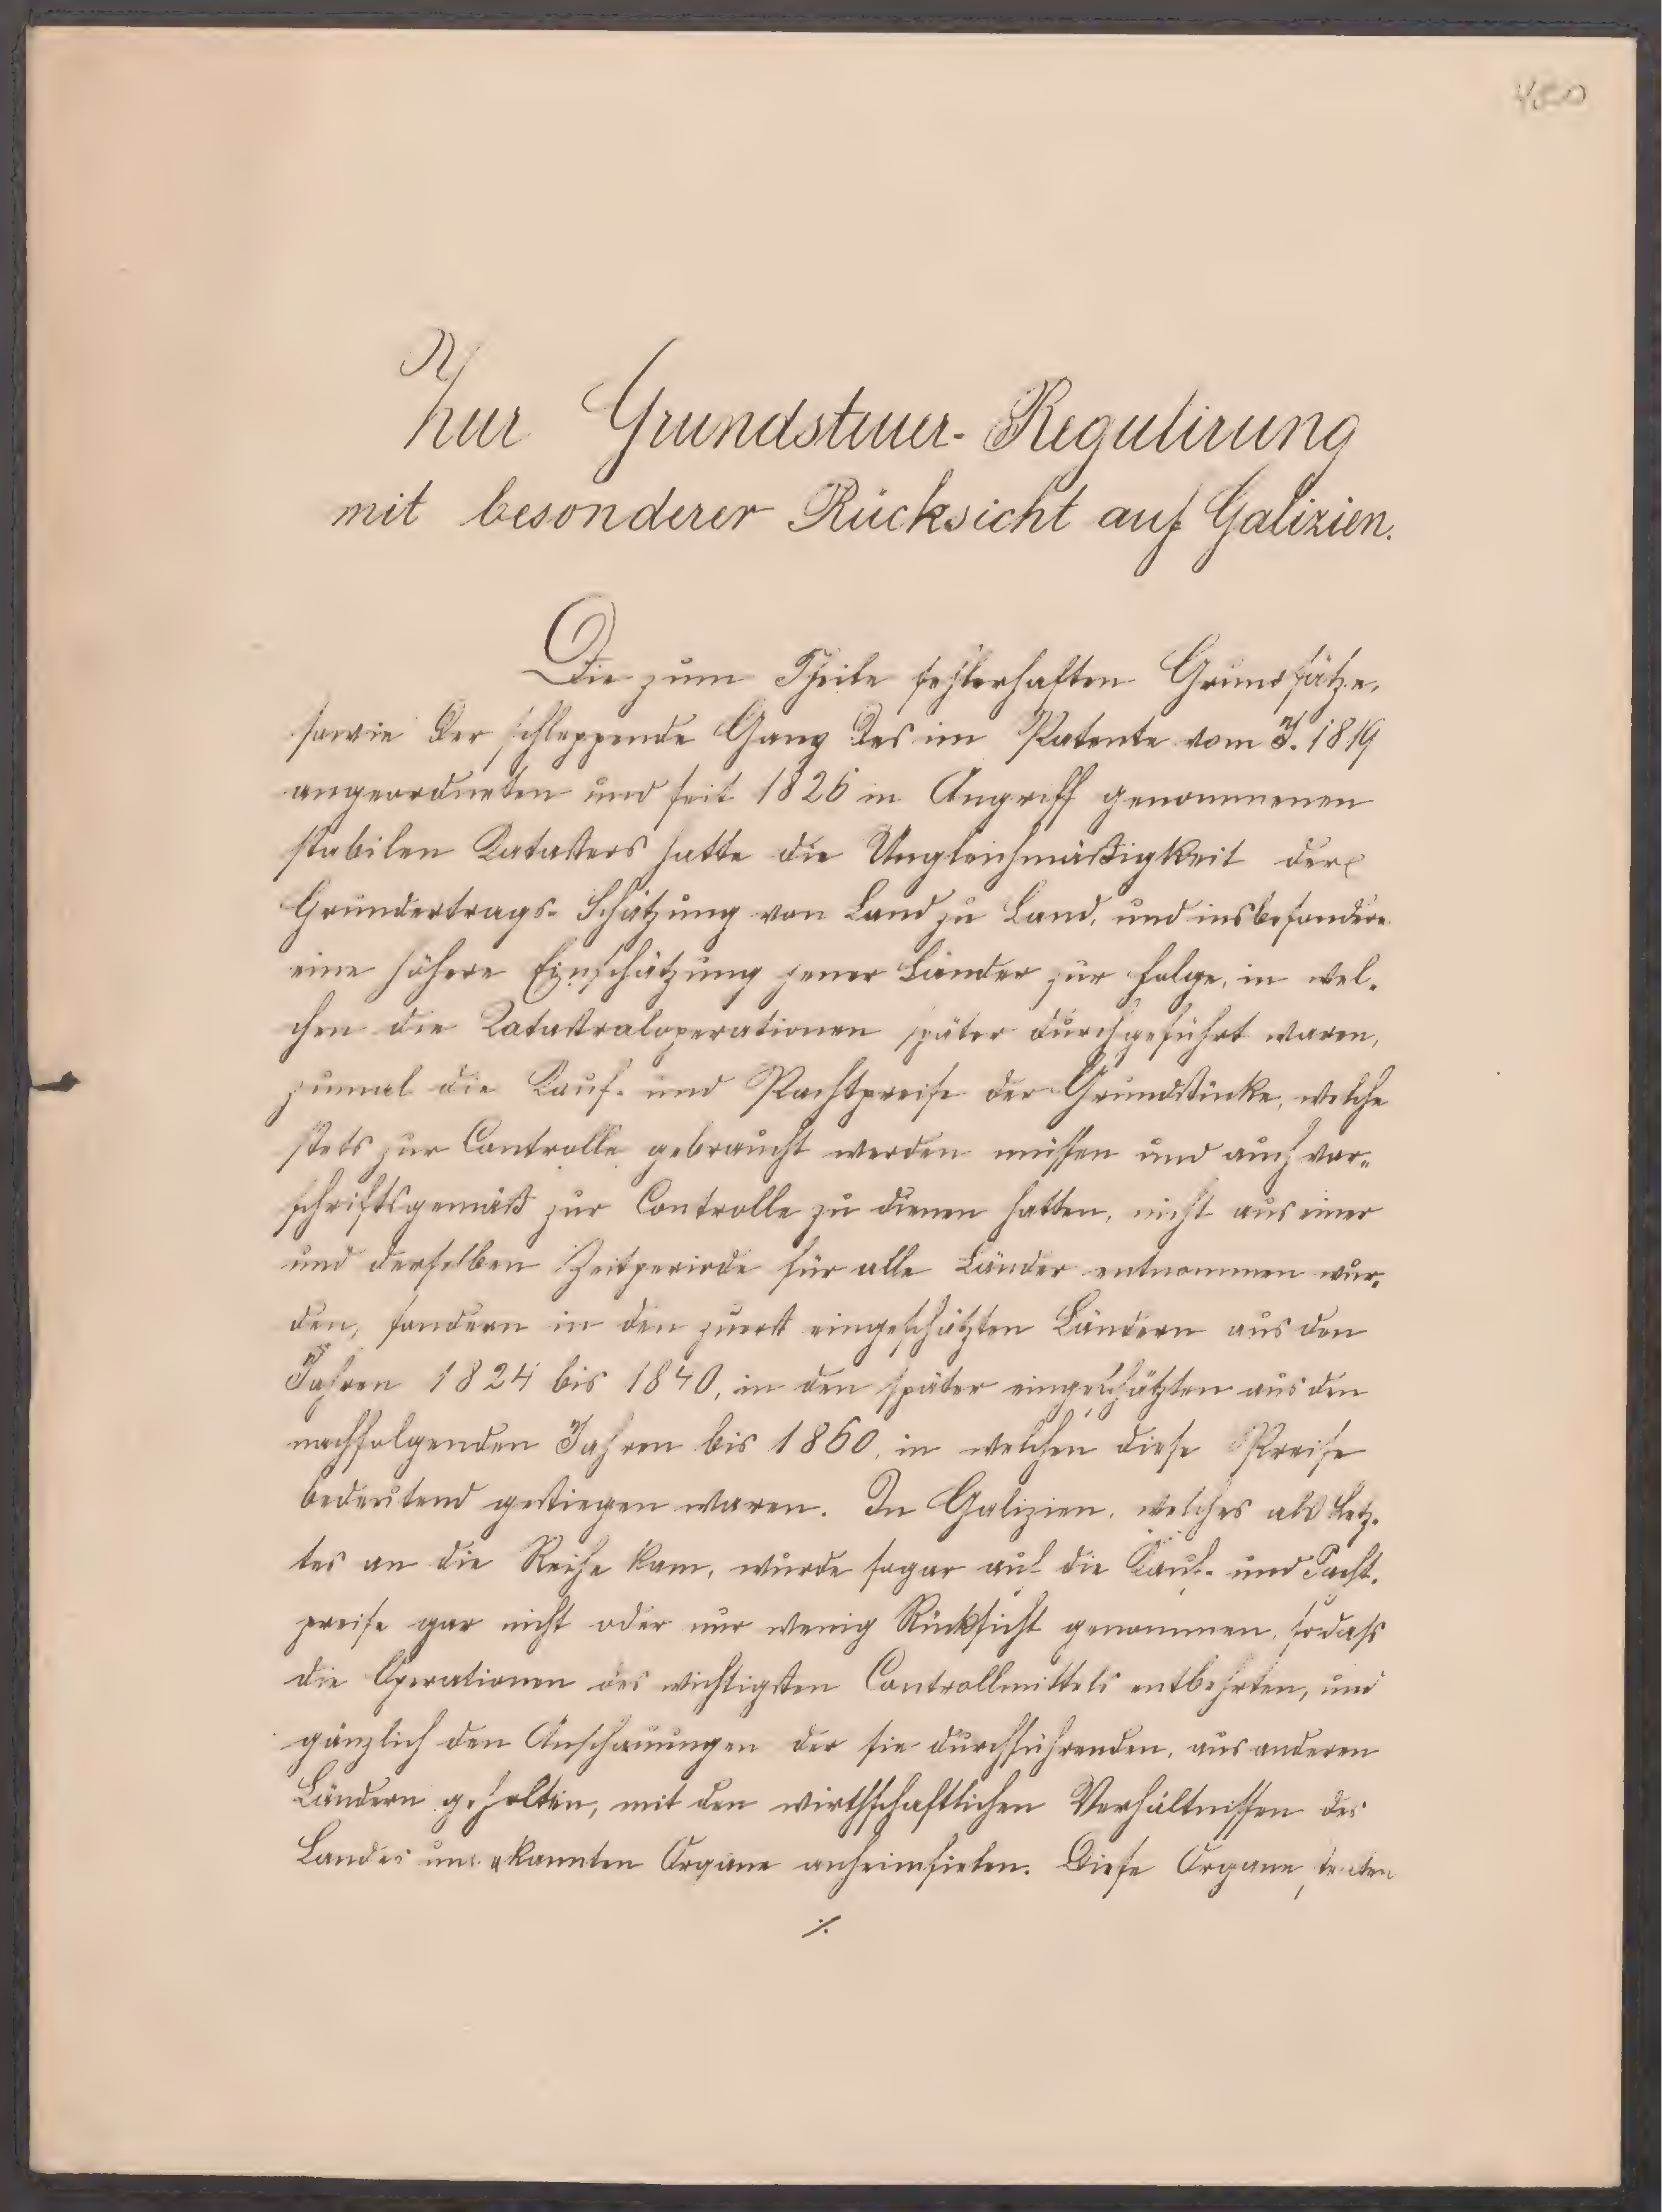 Zur Grundsteuer-Regulirung
mit besonderer Rücksicht auf Galizien.
Die zum Theile fehlerhaften Grundsätze,
sowie der schleppende Gang des im Patente vom J. 1819
angeordneten und seit 1826 in Angriff genommenen
stabilen Katasters hatte die Ungleichmäßigkeit der
Grundertrags-Schätzung von Land zu Land, und insbesondere
eine höhere Einschätzung jener Länder zur Folge, in wel-
chen die Katastraloperationen später durchgeführt waren,
zumal die Kauf- und Pachtpreise der Grundstücke, welche
stets zur Controlle gebraucht werden müssen und auch vor-
schriftsgemäß zur Controlle zu dienen hatten, nicht aus einer
und derselben Zeitperiode für alle Länder entnommen wur-
den, sondern in den zuerst eingeschätzten Ländern aus den
Jahren 1824 bis 1840, in den später eingeschätzten aus den
nachfolgenden Jahren bis 1860, in welchen diese Preise
bedeutend gestiegen waren. In Galizien, welches als letz-
tes an die Reihe kam, wurde sogar auf die Kauf- und Pacht-
preise gar nicht oder nur wenig Rücksicht genommen, sodass
die Operationen des wichtigsten Controllmittels entbehrten, und
gänzlich den Anschauungen der sie durchführenden, aus anderen
Ländern geholten, mit den wirthschaftlichen Verhältnissen des
Landes unbekannten Organe anheimfielen. Diese Organe
./.